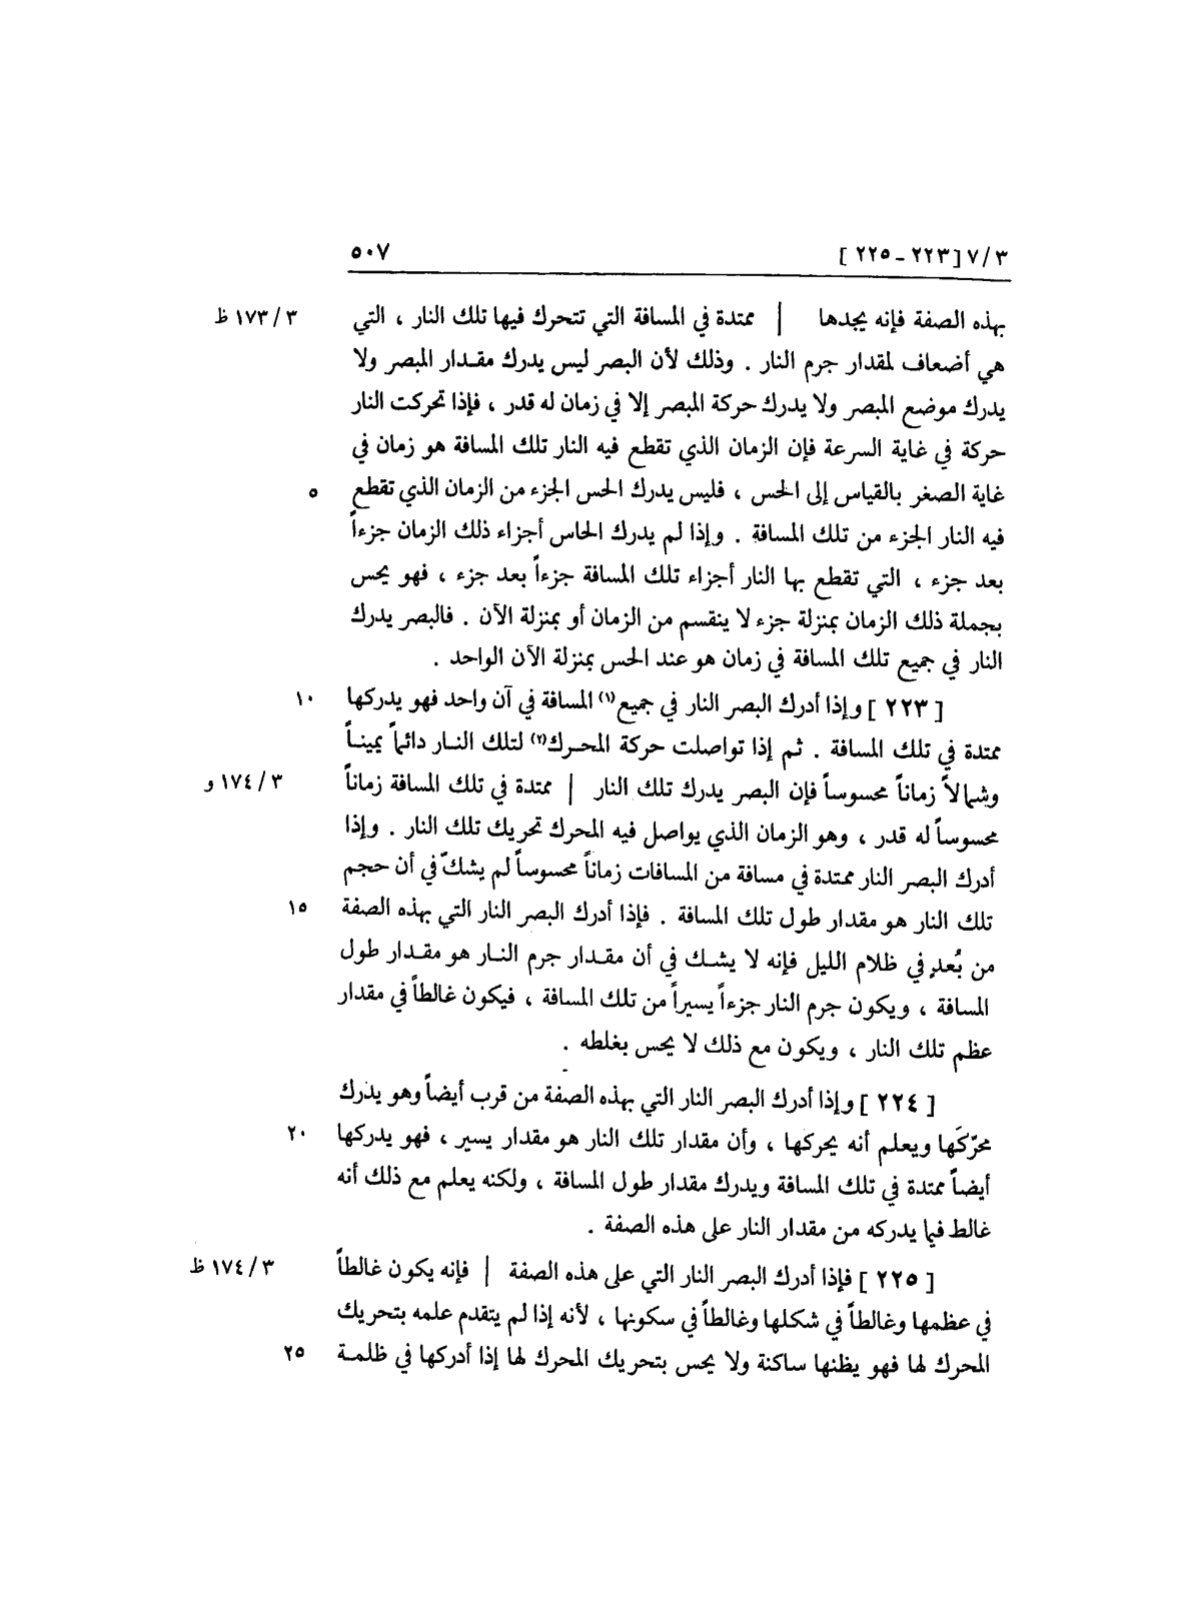 ٣/٧ [٢٢٣ـ٢٢٥] ٥٠٧
بهذه الصفة فإنه يجدها | ممتدة في المسافة التي تتحرك فيها تلك النار ، التي ٣/١٧٣ ظ
هي أضعاف لمقدار جرم النار . وذلك لأن البصر ليس يدرك مقـدار المبصر ولا
يدرك موضع المبصر ولا يدرك حركة المبصر إلا في زمان له قدر ، فإذا تحركت النار
حركة في غاية السرعة فإن الزمان الذي تقطع فيه النار تلك المسافة هو زمان في
غاية الصغر بالقياس إلى الحس ، فليس يدرك الحس الجزء من الزمان الذي تقطع ٥
فيه النار الجزء من تلك المسافة . وإذا لم يدرك الحاس أجزاء ذلك الزمان جزءاً
بعد جزء ، التي تقطع بها النار أجزاء تلك المسافة جزءاً بعد جزء ، فهو يحس
بجملة ذلك الزمان بمنزلة جزء لا ينقسم من الزمان أو بمنزلة الآن . فالبصر يدرك
النار في جميع تلك المسافة في زمان هو عند الحس بمنزلة الآن الواحد .
[ ٢٢٣ ] وإذا أدرك البصر النار في جميع(١) المسافة في آن واحد فهو يدركها ١٠
ممتدة في تلك المسافة . ثم إذا تواصلت حركة المحـرك(٢) لتلك النـار دائماً يمينـاً
وشمالاً زماناً محسوساً فإن البصر يدرك تلك النار | ممتدة في تلك المسافة زماناً ٣/١٧٤ و
محسوساً له قدر ، وهو الزمان الذي يواصل فيه المحرك تحريك تلك النار . وإذا
أدرك البصر النار ممتدة في مسافة من المسافات زماناً محسوساً لم يشكّ في أن حجم
تلك النار هو مقدار طول تلك المسافة . فإذا أدرك البصر النار التي بهذه الصفة ١٥
من بُعدٍ في ظلام الليل فإنه لا يشـك في أن مقـدار جرم النـار هو مقـدار طول
المسافة ، ويكون جرم النار جزءاً يسيراً من تلك المسافة ، فيكون غالطاً في مقدار
عظم تلك النار ، ويكون مع ذلك لا يحس بغلطه .
[ ٢٢٤ ] وإذا أدرك البصر النار التي بهذه الصفة من قرب أيضاً وهو يدرك
محرّكَها ويعلم أنه يحركها ، وأن مقدار تلك النار هو مقدار يسير ، فهو يدركها ٢٠
أيضاً ممتدة في تلك المسافة ويدرك مقدار طول المسافة ، ولكنه يعلم مع ذلك أنه
غالط فيما يدركه من مقدار النار على هذه الصفة .
[ ٢٢٥ ] فإذا أدرك البصر النار التي على هذه الصفة | فإنه يكون غالطاً ٣/١٧٤ ظ
في عظمها وغالطاً في شكلها وغالطاً في سكونها ، لأنه إذا لم يتقدم علمه بتحريك
المحرك لها فهو يظنها ساكنة ولا يحس بتحريك المحرك لها إذا أدركها في ظلمـة ٢٥